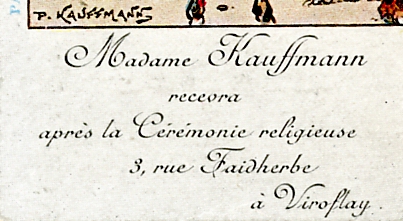 P. KAUFFMANN
Madame Kauffmann
recevra
après la Cérémonie religieuse
3, rue Faidherbe
à Viroflay.